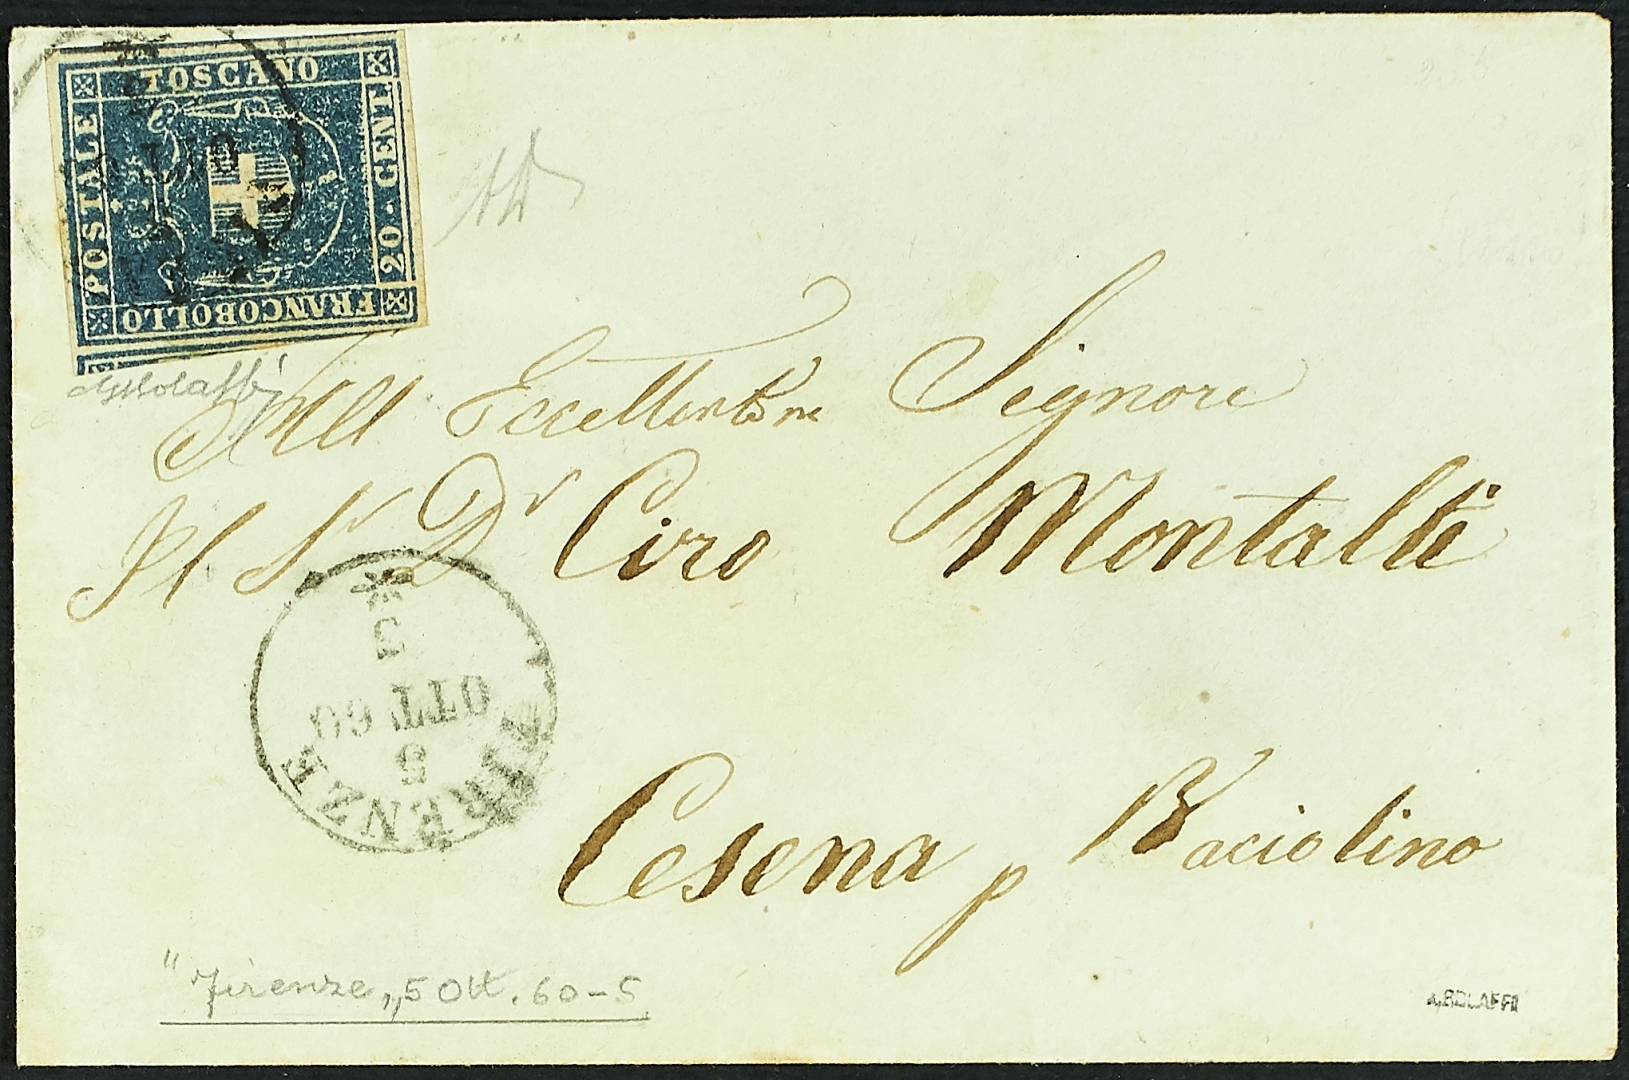 FRANCOBOLLO POSTALE TOSCANO 20. CENT.
OTT
Asbolaffi
All Eccellentme Signore
Il Sr Dr Ciro Montalti
* 5
OTT 60
5
FIRENZE
Cesena p Baciolino
"Firenze„ 5 Ott. 60-5
A.BOLAFFI